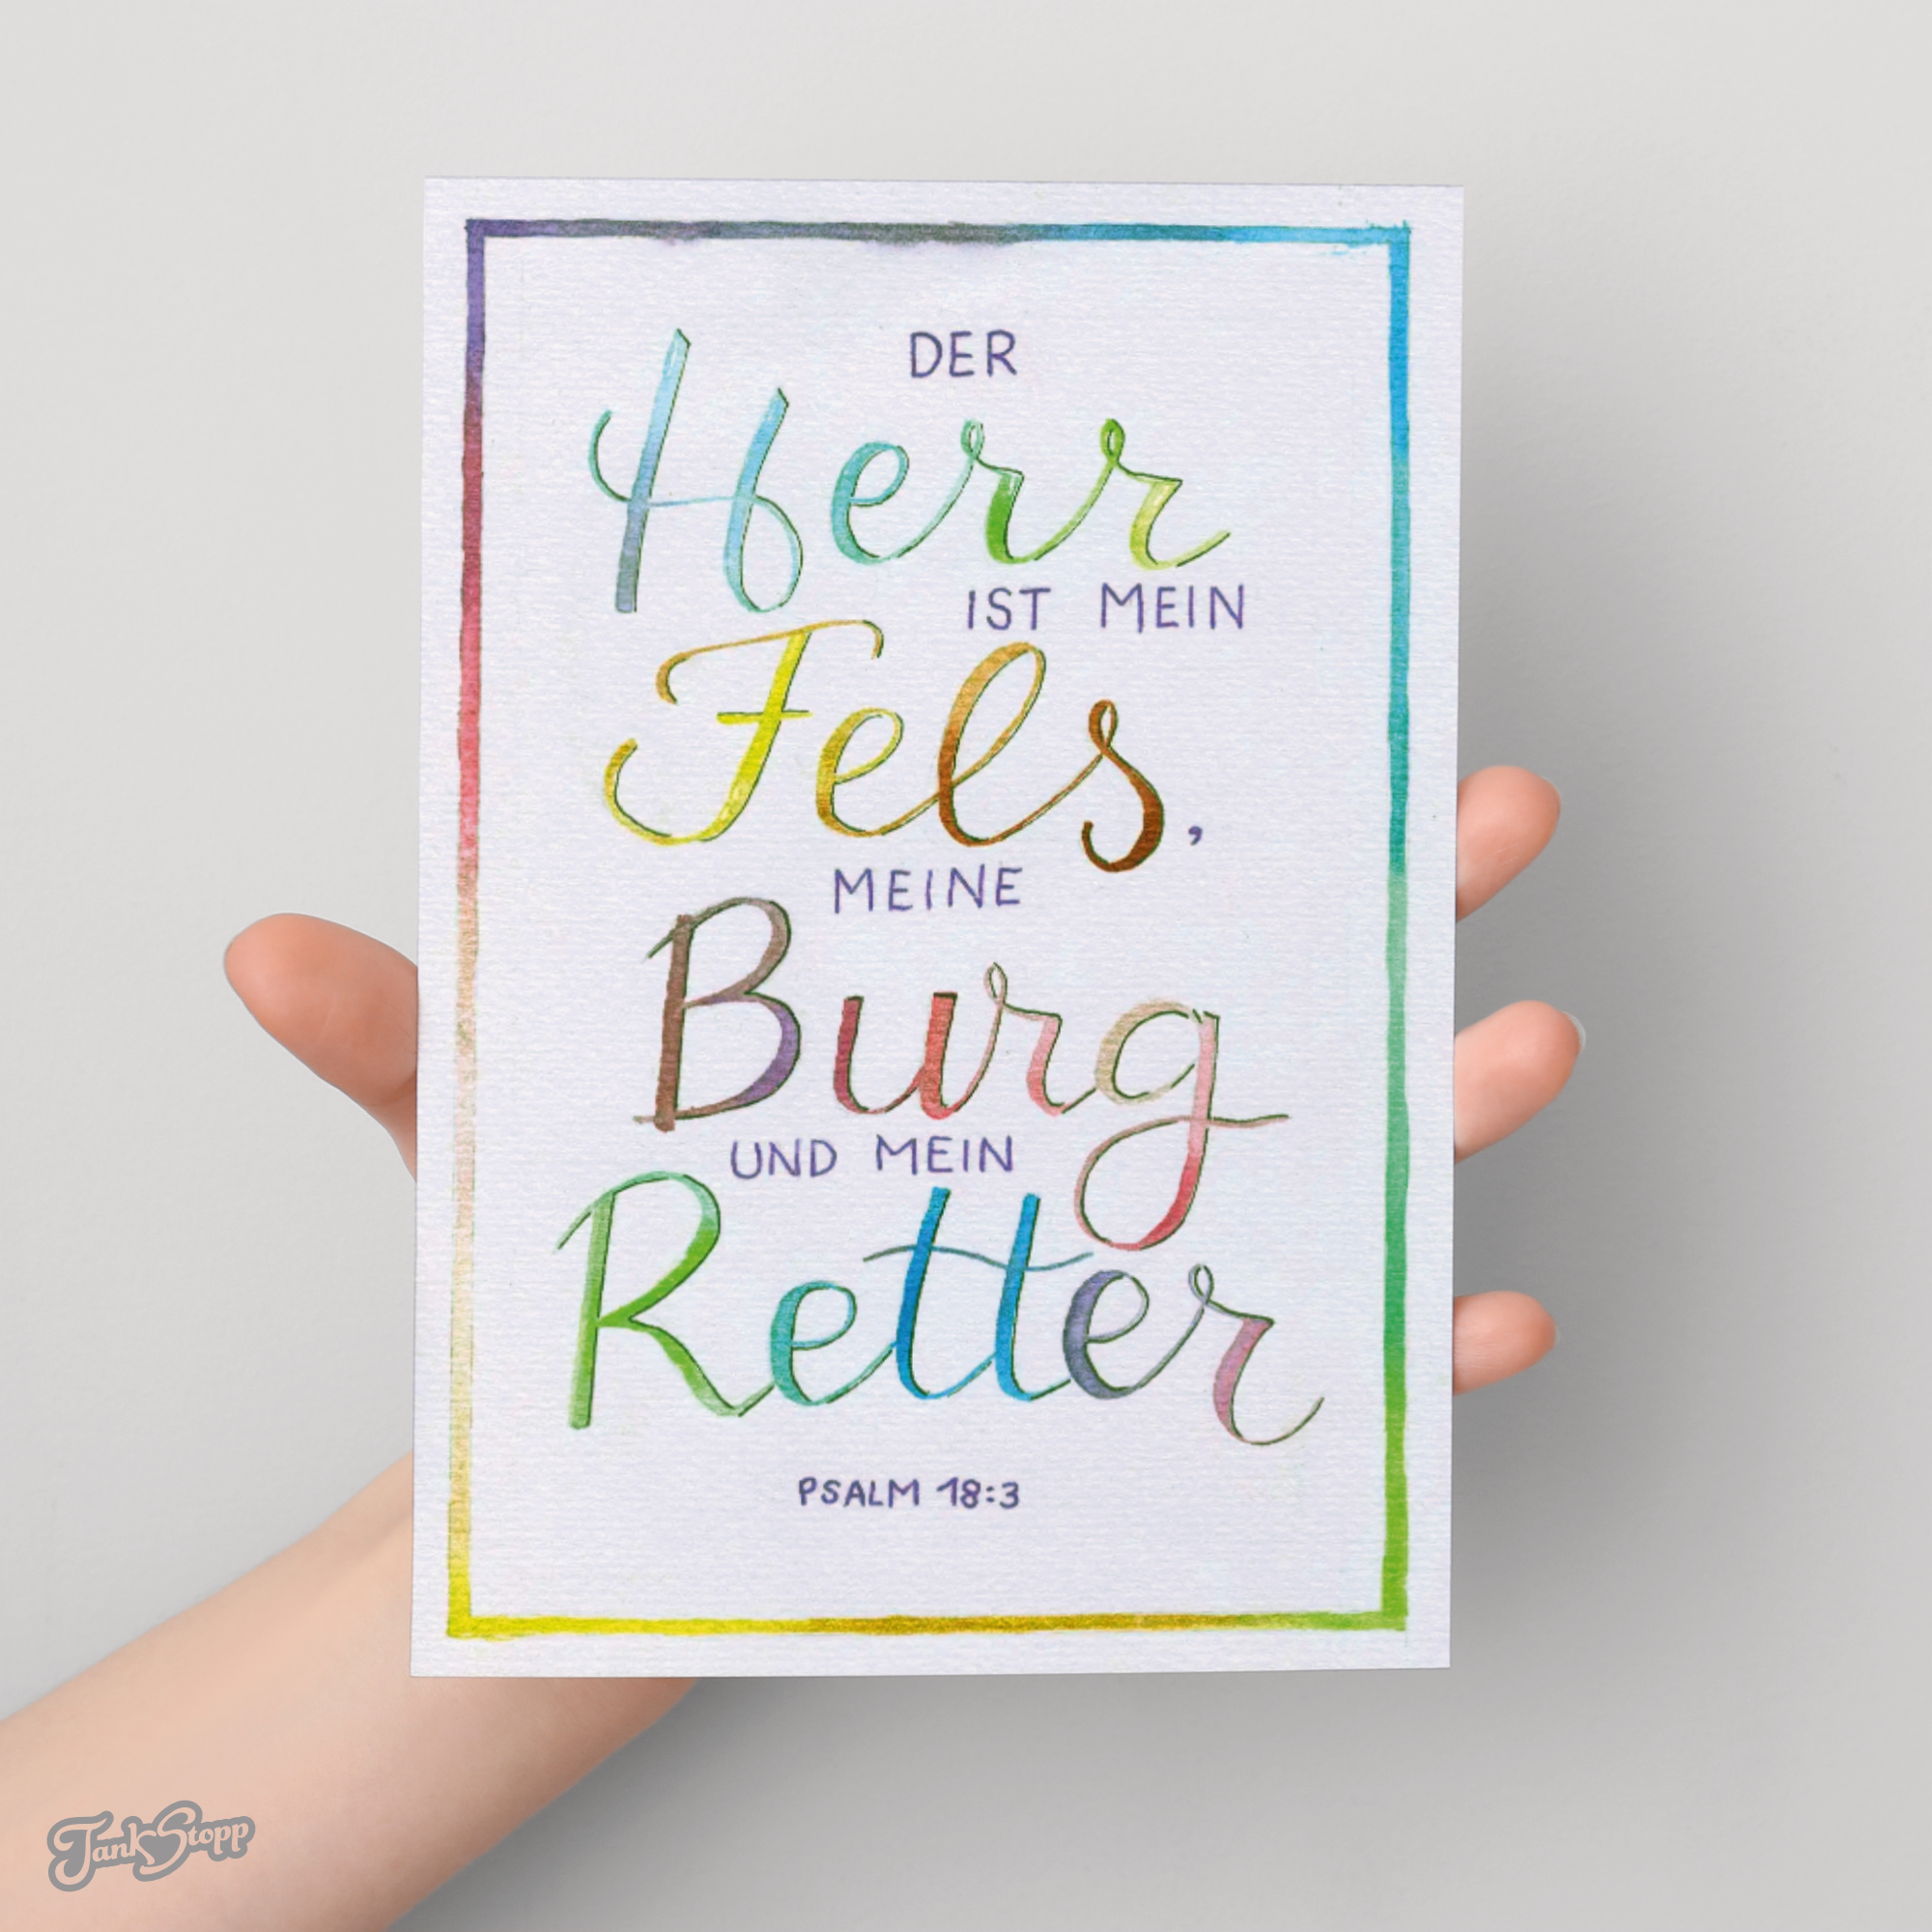 DER
Herr
IST MEIN
Fels,
MEINE
Burg
UND MEIN
Retter
PSALM 18:3
TankStopp